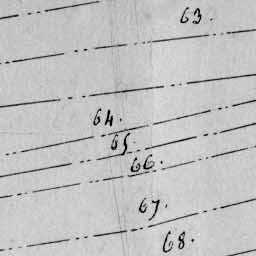 63.
64.
65.
66.
67.
68.